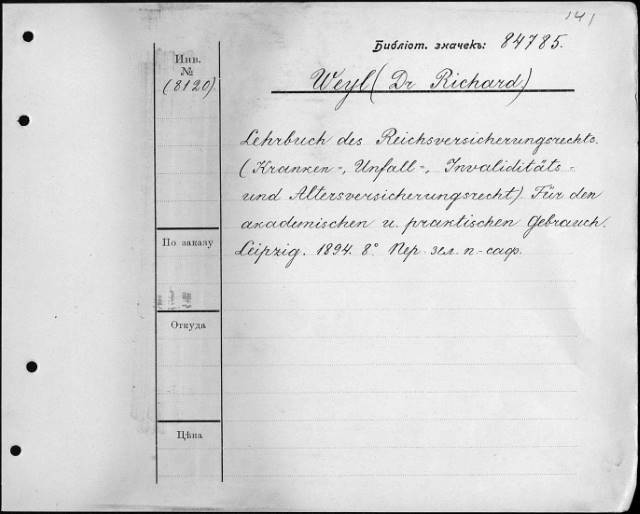 141
Библіот. значекъ: 84785.
Инв.
№
(8120)
Weyl (Dr Richard)
Lehrbuch des Reichsversicherungsrechts.
(Kranken-, Unfall-, Invaliditäts-
und Altersversicherungsrecht) Für den
akademischen u. praktischen Gebrauch.
Leipzig. 1894. 8° Пер. зел. п-саф.
По заказу
Откуда
Цѣна